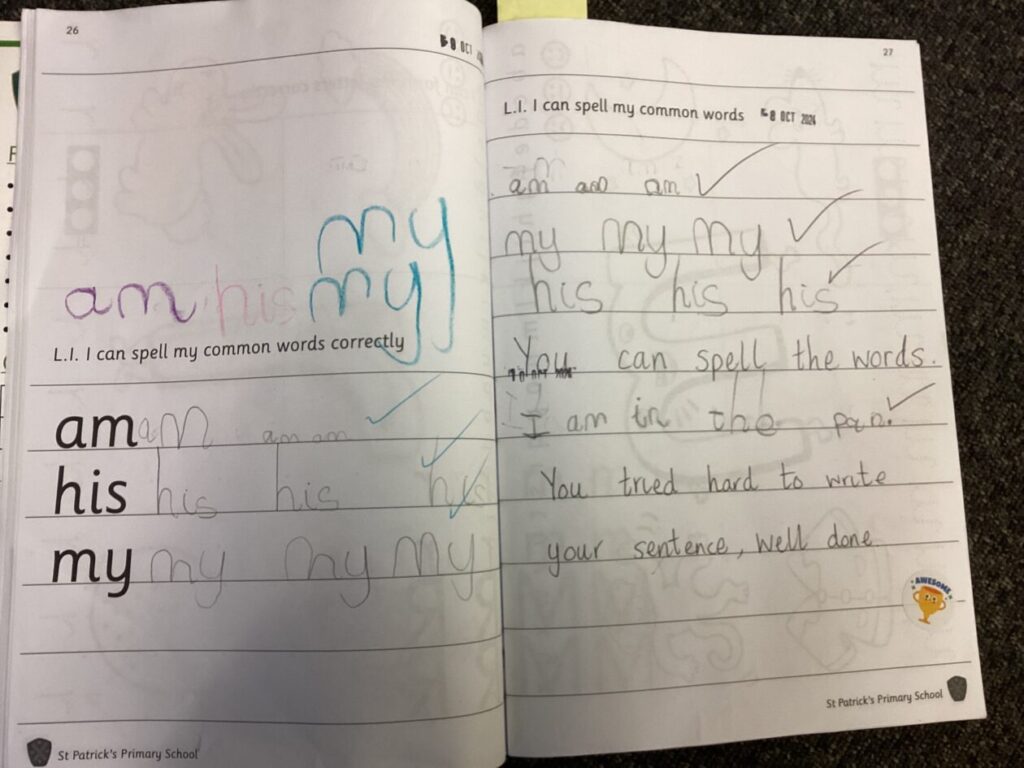 26
8 OCT
my
am his my
L.I. I can spell my common words correctly
am am am am
his his his his
my my my my
St Patrick's Primary School
27
L.I. I can spell my common words 8 OCT 2024
am am am
my my my
his his his
You can spell the words.
I am in the
You tried hard to write
your sentence, well done
AWESOME
St Patrick's Primary School